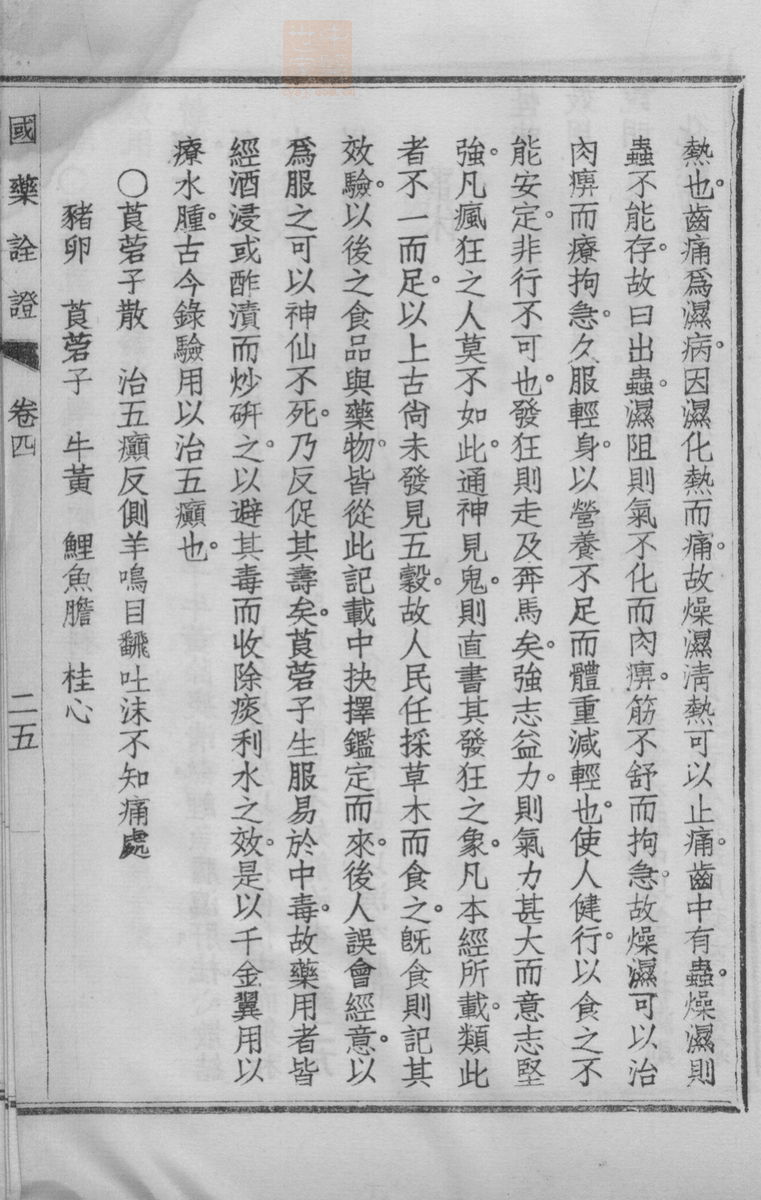 熱也。齒痛爲濕病。因濕化熱而痛。故燥濕清熱可以止痛。齒中有蟲。燥濕則
蟲不能存。故曰出蟲。濕阻則氣不化而肉痹。筋不舒而拘急。故燥濕可以治
肉痹而療拘急。久服輕身。以營養不足而體重減輕也。使人健行。以食之不
能安定。非行不可也。發狂則走及奔馬矣。強志益力。則氣力甚大而意志堅
強。凡瘋狂之人莫不如此。通神見鬼。則直書其發狂之象。凡本經所載。類此
者不一而足。以上古尙未發見五穀。故人民任採草木而食之。旣食則記其
效驗。以後之食品與藥物。皆從此記載中抉擇鑑定而來。後人誤會經意。以
爲服之可以神仙不死。乃反促其壽矣。莨菪子生服易於中毒。故藥用者皆
經酒浸或酢漬而炒研之。以避其毒而收除痰利水之效。是以千金翼用以
療水腫。古今錄驗用以治五癲也。
〇莨菪子散　治五癲反側羊鳴目飜吐沫不知痛處
豬卵　莨菪子　牛黃　鯉魚膽　桂心
國藥詮證　卷四　二五